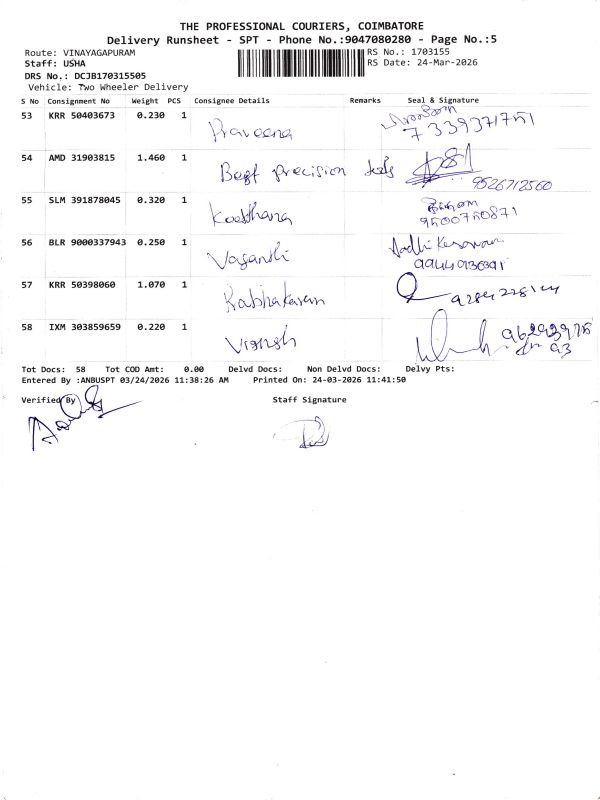 THE PROFESSIONAL COURIERS, COIMBATORE
Delivery Runsheet - SPT - Phone No.:9047080280 - Page No.:5
Route: VINAYAGAPURAM RS No.: 1703155
Staff: USHA RS Date: 24-Mar-2026
DRS No.: DCJB170315505
Vehicle: Two Wheeler Delivery
S No Consignment No Weight PCS Consignee Details Remarks Seal & Signature
53 KRR 50403673 0.230 1 Praveena
7339371751
54 AMD 31903815 1.460 1 Best precision tools
9526712560
55 SLM 391878045 0.320 1 Keerthana
9500750871
56 BLR 9000337943 0.250 1 Vasanthi Aadhi Kesavan
57 KRR 50398060 1.070 1 Prabhakaran
58 IXM 303859659 0.220 1 Vignesh
Tot Docs: 58 Tot COD Amt: 0.00 Delvd Docs: Non Delvd Docs: Delvy Pts:
Entered By :ANBUSPT 03/24/2026 11:38:26 AM Printed On: 24-03-2026 11:41:50
Verified By Staff Signature